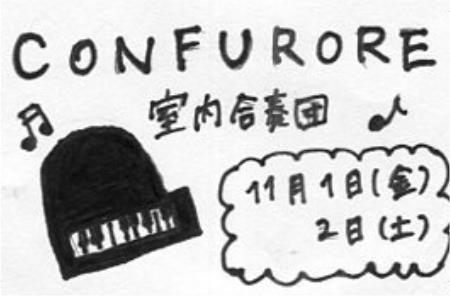 CONFURORE
室内合奏団
11月1日(金)
2日(土)